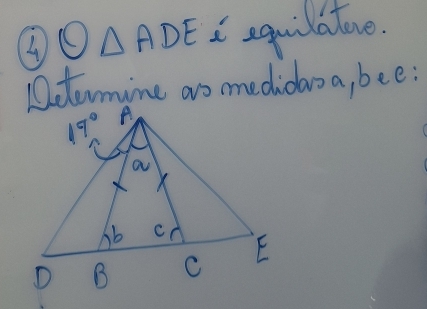 4) O △ ADE é equilátero.
Determine as medidas a, b e c:
A
17°
a
b
c
D
B
C
E